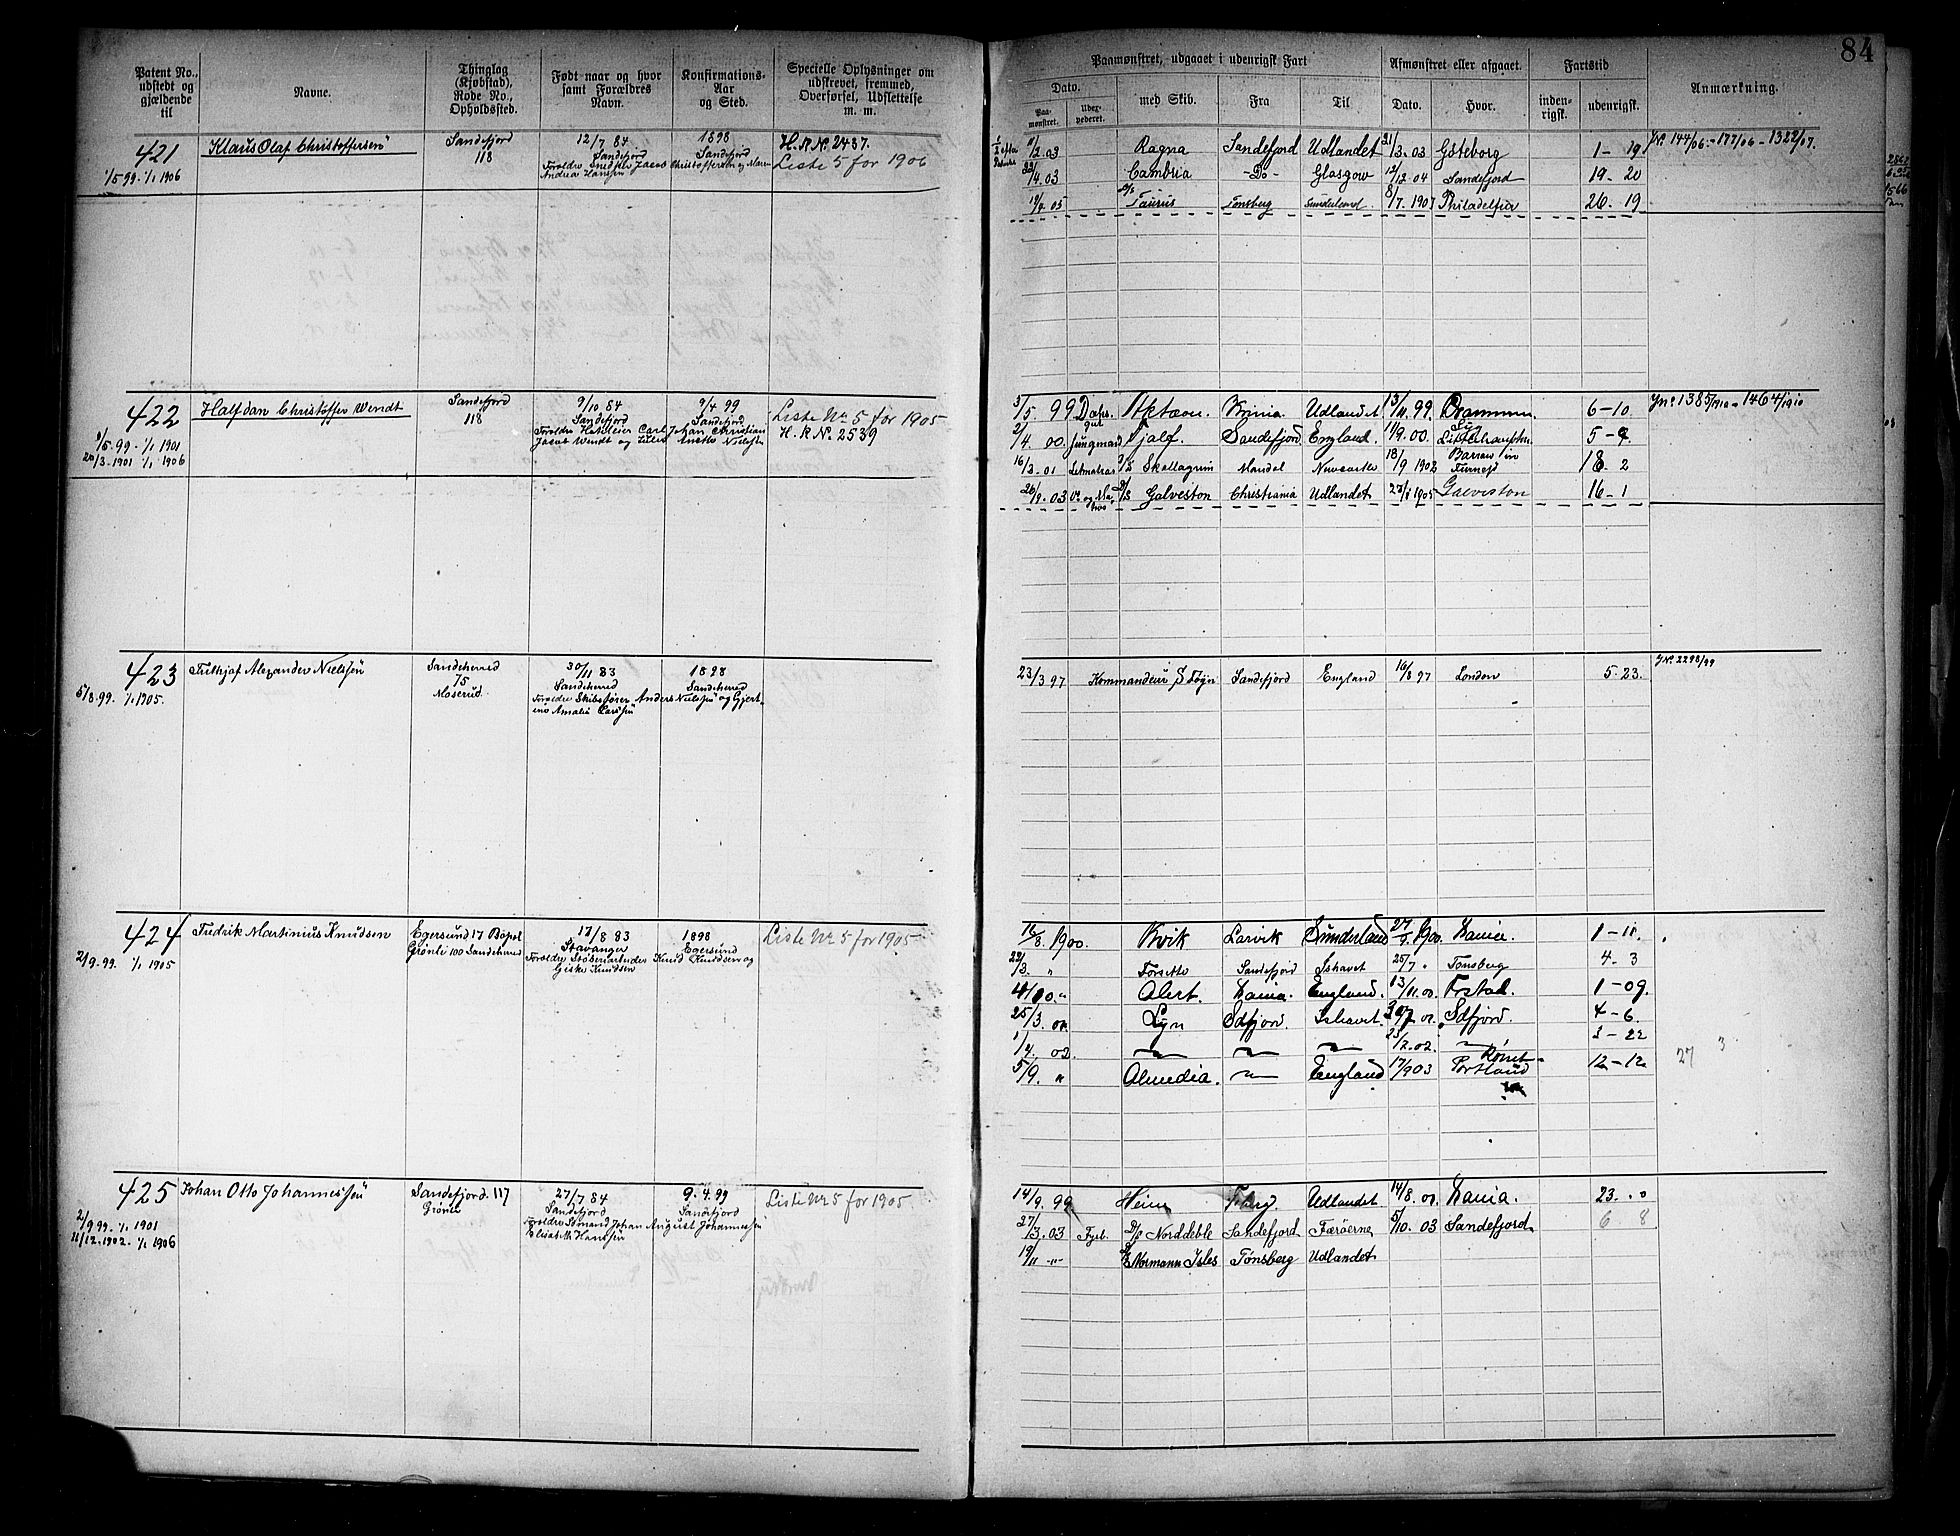 84
Patent No., udstedt og gjældende til
Navne.
Thinglag (Kjøbstad), Rode No., Opholdssted.
Født naar og hvor samt Forældres Navn.
Konfirmations- Aar og Sted.
Specielle Oplysninger om udskrevet, fremmed, Overførsel, Udslettelse m. m.
Paamønstret, udgaaet i udenrigsk Fart
Dato.
Paa- mønstret.
Udex- pederet.
med Skib.
Fra
Til
Afmønstret eller afgaaet.
Dato.
Hvor.
Fartstid
inden- rigsk.
udenrigsk.
Anmærkning.
421
1/5 99. 1/1 1906
Klaus Olaf Christoffersen
Sandefjord
118
12/7 84
Sandefjord
Forældre Smedsted Jacob Christoffersen og Maren
Andrea Hansen
1898
Sandefjord
H. R. No. 2487.
Liste 5 for 1906
11/2.03 Ragna Sandefjord Udlandet 21/3.03 Göteborg 1-19
JNo. 144/06 - 177/06 - 1322/07.
22/4.03 Cambria -Do- Glasgow 12/12 04 Sandefjord 19-20
19/9.05 D/S Taurus Tønsberg Sunderland. 8/7. 1907 Philadelfia 26-19
422
1/5.99. 1/1 1901
20/3.1901 1/1 1906
Halfdan Christoffer Wendt
Sandefjord
118
9/10 84
Sandefjord
Forældre Hoteleier Carl Johan Christian
Jacob Wendt og
9/4 99
Sandefjord
Liste No 5 for 1905
H. R No. 2539
5/5 99 Udlandet 13/11.99. Drammen 6-10.
JNo 1385/1910 - 1464/1910
2/4 00. Jungmand Sandefjord England. 11/9.00. 5-9
16/3.01 Letmatros Skallagrim Mandal Newcastle 18/9 1902 Barrow in Furness 18-2
26/9.03 D/S Galveston Christiania Udlandet 23/1 1905 Galveston 16-1
423
5/8.99. 1/1 1905.
Frithjof Alexander Nielsen
Sandeherred
75
Moserud.
30/11 83
Sandeherred
Forældre Skibsfører Anders Nielsen og Gjert-
ine Amalie Larssen
1898
Sandeherred
23/3.97 Kommandeur S. Foyn Sandefjord England 16/8 97 London 5.23.
JNo. 2298/99
424
2/9.99. 1/1 1905
Fredrik Martinius Knudsen
Egersund 17 Bøpel
Grønli 100 Sandeherred
17/8 83
Stavanger
Forældre Støberiarbeider Knud Knudsen og
Giske Knudsen
1898
Egersund
Liste No. 5 for 1905
16/8. 1900. Kvik Larvik Sunderland 27/9. 1900. Dania. 1-11.
22/3. " Forsette Sandefjord Ishavet 25/7 " Tønsberg 4.3
4/10. " Alert. Dania. England. 13/11.00. Frstad. 1-09.
25/3. 01 Lyn Sdfjord. Ishavet. Sdfjord. 4-6.
1/4. 02. 23/2.02. 3-22
5/9. " Almedia. England 17/9 03 Portland 12-12
27 3
425
2/9.99. 1/1 1901
11/12.1902. 1/1 1906
Johan Otto Johannessen
Sandefjord. 117
Grønli
27/7 84
Sandefjord
Forældre Sømand Johan August Johannessen
Elisat M. Hanssen
9.4.99
Sandefjord
Liste No. 5 for 1905.
14/9.99 Heim Udlandet 14/8.00. Dania. 23..0
27/3.03 Fyrb. D/S Norddeble Sandefjord Færøerne 5/10.03 Sandefjord 6 8
19/11 -"- Normann Isles Tønsberg Udlandet